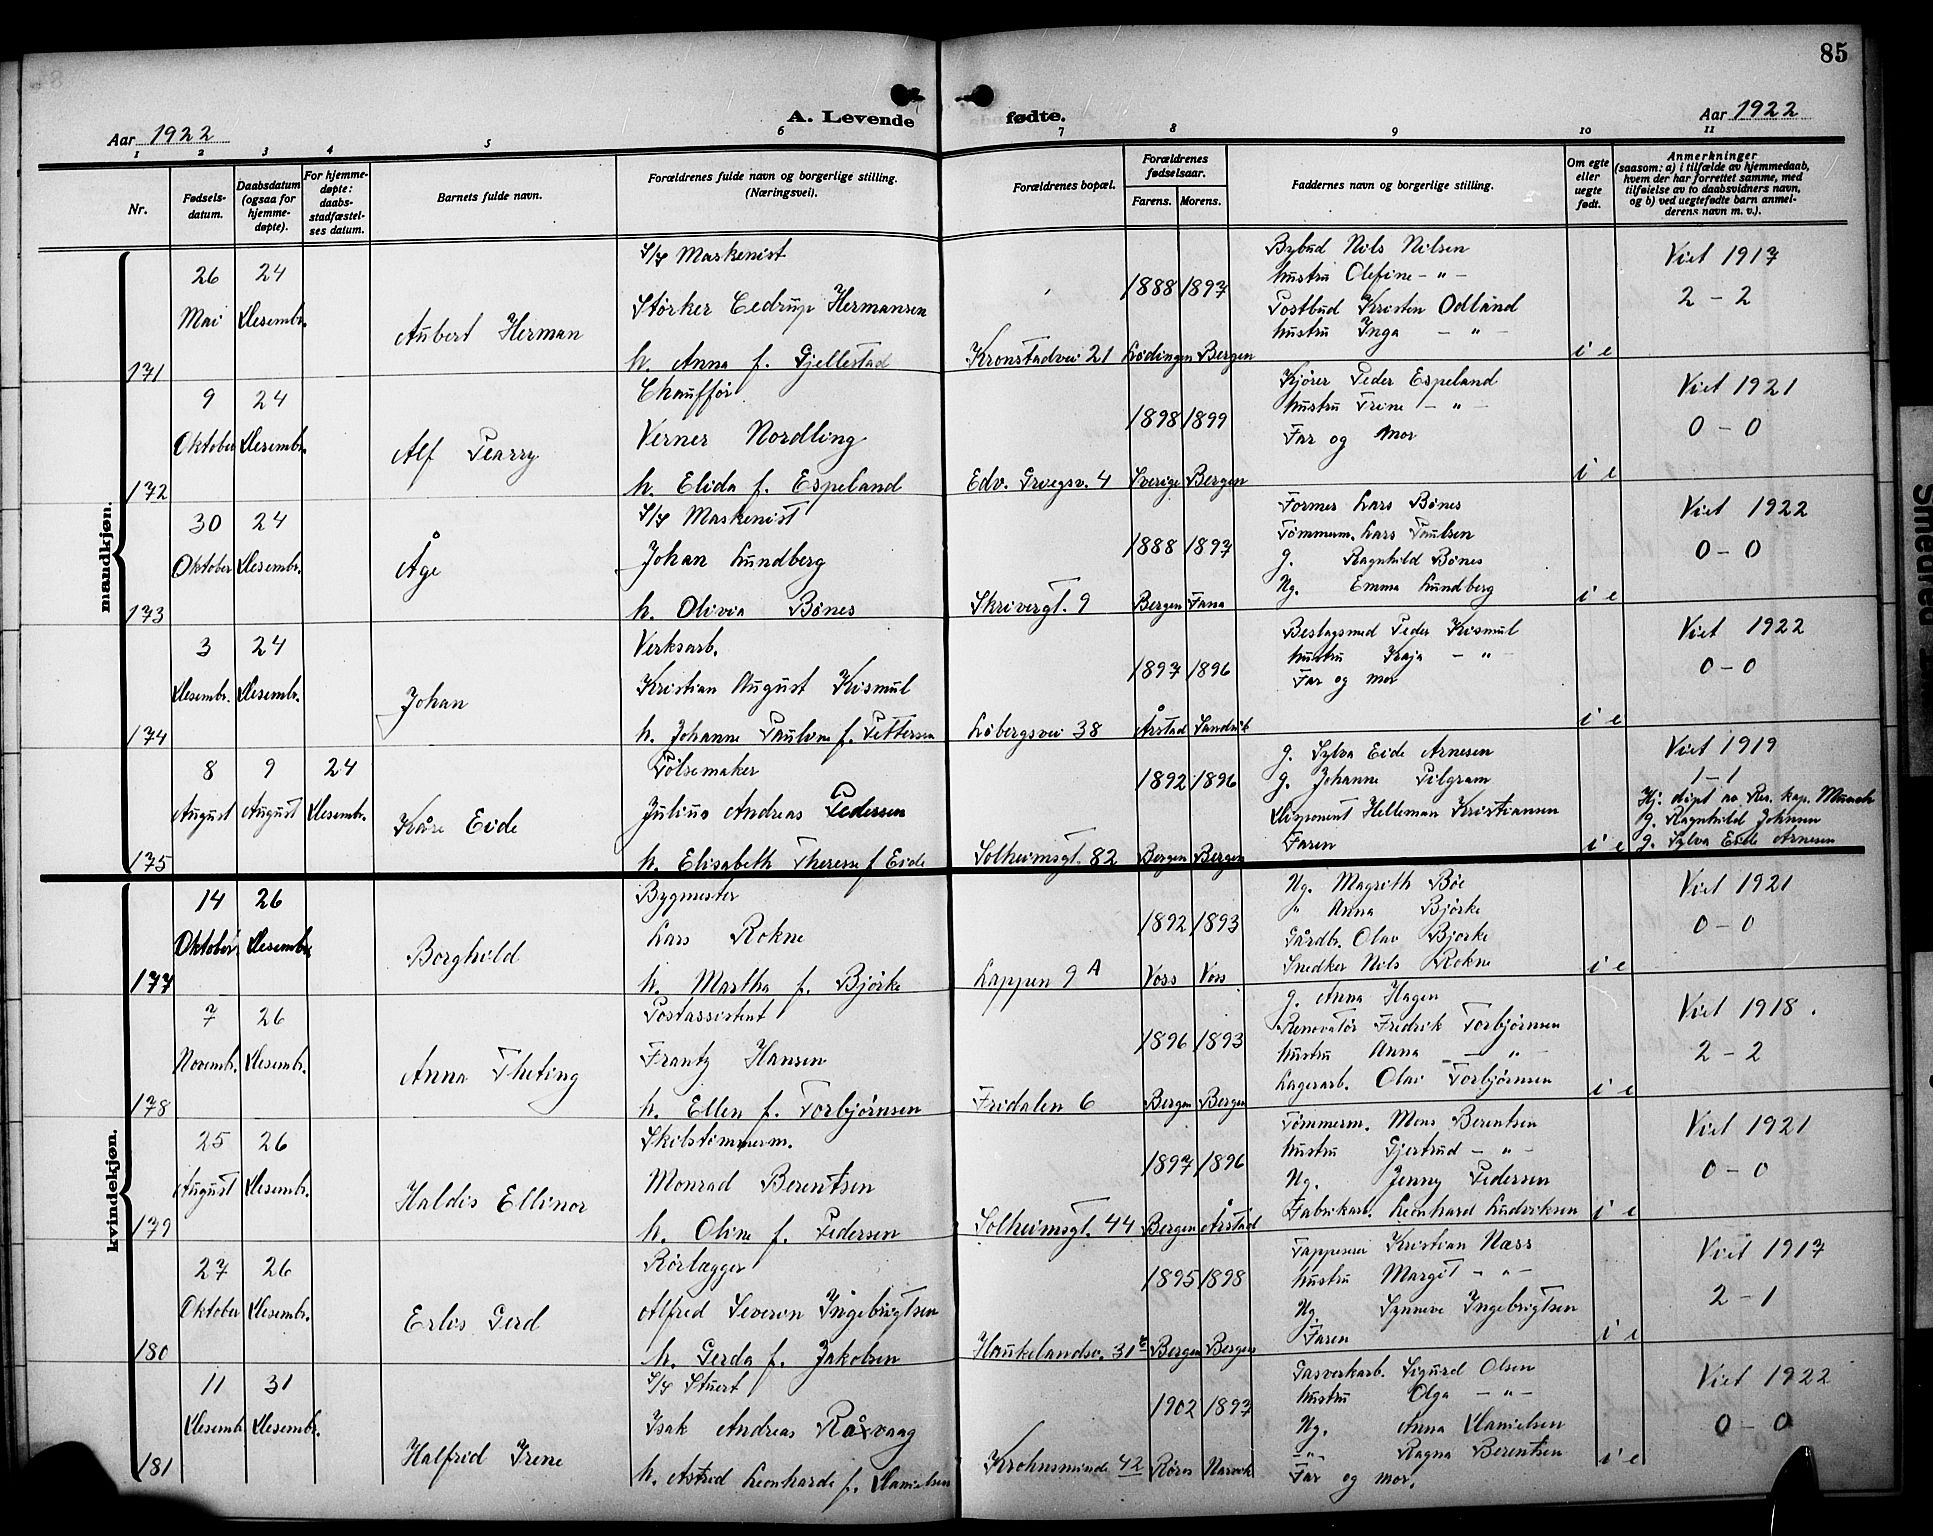 85
Aar 1922
A. Levende fødte.
Aar 1922
1 2 3 4 5 6 7 8 9 10 11
Nr.
Fødsels-
datum.
Daabsdatum
(ogsaa for
hjemme-
døpte).
For hjemme-
døpte:
daabs-
stadfæstel-
ses datum.
Barnets fulde navn.
Forældrenes fulde navn og borgerlige stilling.
(Næringsvei).
Forældrenes bopæl.
Forældrenes
fødselsaar.
Farens. Morens.
Faddernes navn og borgerlige stilling.
Om egte
eller
uegte
født.
Anmerkninger
(saasom: a) i tilfælde av hjemmedaab,
hvem der har forrettet samme, med
tilføielse av to daabsvidners navn,
og b) ved uegtefødte barn anmel-
derens navn m. v.).
mandkjøn.
171
26 Mai
24 Desembr.
Aubert Herman
S/s Maskenist
Størker Eedrup Hermansen
h. Anna f. Gjellestad
Kronstadvei 21
1888 1897
Lødingen Bergen
Bybud Nils Nilsen
hustru Olefine - " -
Postbud Kristen Odland
hustru Inga - " -
i e
Viet 1917
2 - 2
172
9 Oktober
24 Desembr.
Alf Pearry
Chauffør
Verner Nordling
h. Elida f. Espeland
Edv. Griegsv. 4
1898 1899
Sverige Bergen
Kjører Peder Espeland
hustru Trine - " -
Far og mor
i e
Viet 1921
0 - 0
173
30 Oktober
24 Desembr.
Åge
S/s Maskenist
Johan Lundberg
h. Olivia Bønes
Skrivergt. 9
1888 1897
Bergen Fana
Former Lars Bønes
Tømmerm. Lars Paulsen
g. Ragnhild Bønes
Ug. Emma Lundberg
i e
Viet 1922
0 - 0
174
3 Desembr.
24 Desembr.
Johan
Verksarb.
Kristian August Kismul
h. Johanne Pauline f. Pettersen
Løbergsvei 38
1897 1896
Årstad Sandvik
Beslagsmed Peder Kismul
hustru Kaja - " -
Far og mor
i e
Viet 1922
0 - 0
175
8 August
9 August
24 Desembr.
Kåre Eide
Pølsemaker
Julius Andreas Pedersen
h. Elisabeth Therese f. Eide
Solheimsgt. 82
1892 1896
Bergen Bergen
g. Sylva Eide Arnesen
g. Johanne Pilgram
Disponent Helleman Kristiansen
Faren
i e
Viet 1919
1 - 1
Hj. døpt av Res. kap. Munch
g. Ragnhild Johnsen
g. Sylva Eide Arnesen
kvindekjøn.
177
14 Oktober
26 Desembr.
Borghild
Bygmester
Lars Rokne
h. Martha f. Bjørke
Lappen 9 A
1892 1893
Voss Voss
Ug. Magrith Bøe
" Anna Bjørke
Gårdbr. Olav Bjørke
Snedker Nils Rokne
i e
Viet 1921
0 - 0
178
7 Novembr.
26 Desembr.
Anna Theting
Postassistent
Frantz Hansen
h. Ellen f. Torbjørnsen
Fridalen 6
1896 1893
Bergen Bergen
g. Anna Hagen
Renovatør Fredrik Torbjørnsen
hustru Anna - " -
Lagerarb. Olav Torbjørnsen
i e
Viet 1918.
2 - 2
179
25 August
26 Desembr.
Haldis Ellinor
Skibstømmerm.
Monrad Berentsen
h. Oline f. Pedersen
Solheimsgt. 44
1897 1896
Bergen Årstad
Tømmerm. Mons Berentsen
hustru Gjertrud - " -
Ug. Jenny Pedersen
Fabrikarb. Leonhard Ludviksen
i e
Viet 1921
0 - 0
180
27 Oktober
26 Desembr.
Erlis Gerd
Rørlægger
Alfred Severin Ingebrigtsen
h. Gerda f. Jakobsen
Haukelandsv. 31
1895 1898
Bergen Bergen
Tappeseier Kristian Næss
hustru Margit - " -
Ug. Synneve Ingebrigtsen
Faren
i e
Viet 1917
2 - 1
181
11 Desembr
31 Desembr.
Halfrid Irene
S/s Stuert
Isak Andreas Råxvaag
h. Astrid Leonharde f. Danielsen
Krohnsminde 42
1902 1897
Røros Narvik
Gasverkarb. Sigurd Olsen
hustru Olga - " -
Ug. Anna Danielsen
- " - Ragna Berentsen
Far og mor.
i e
Viet 1922
0 - 0